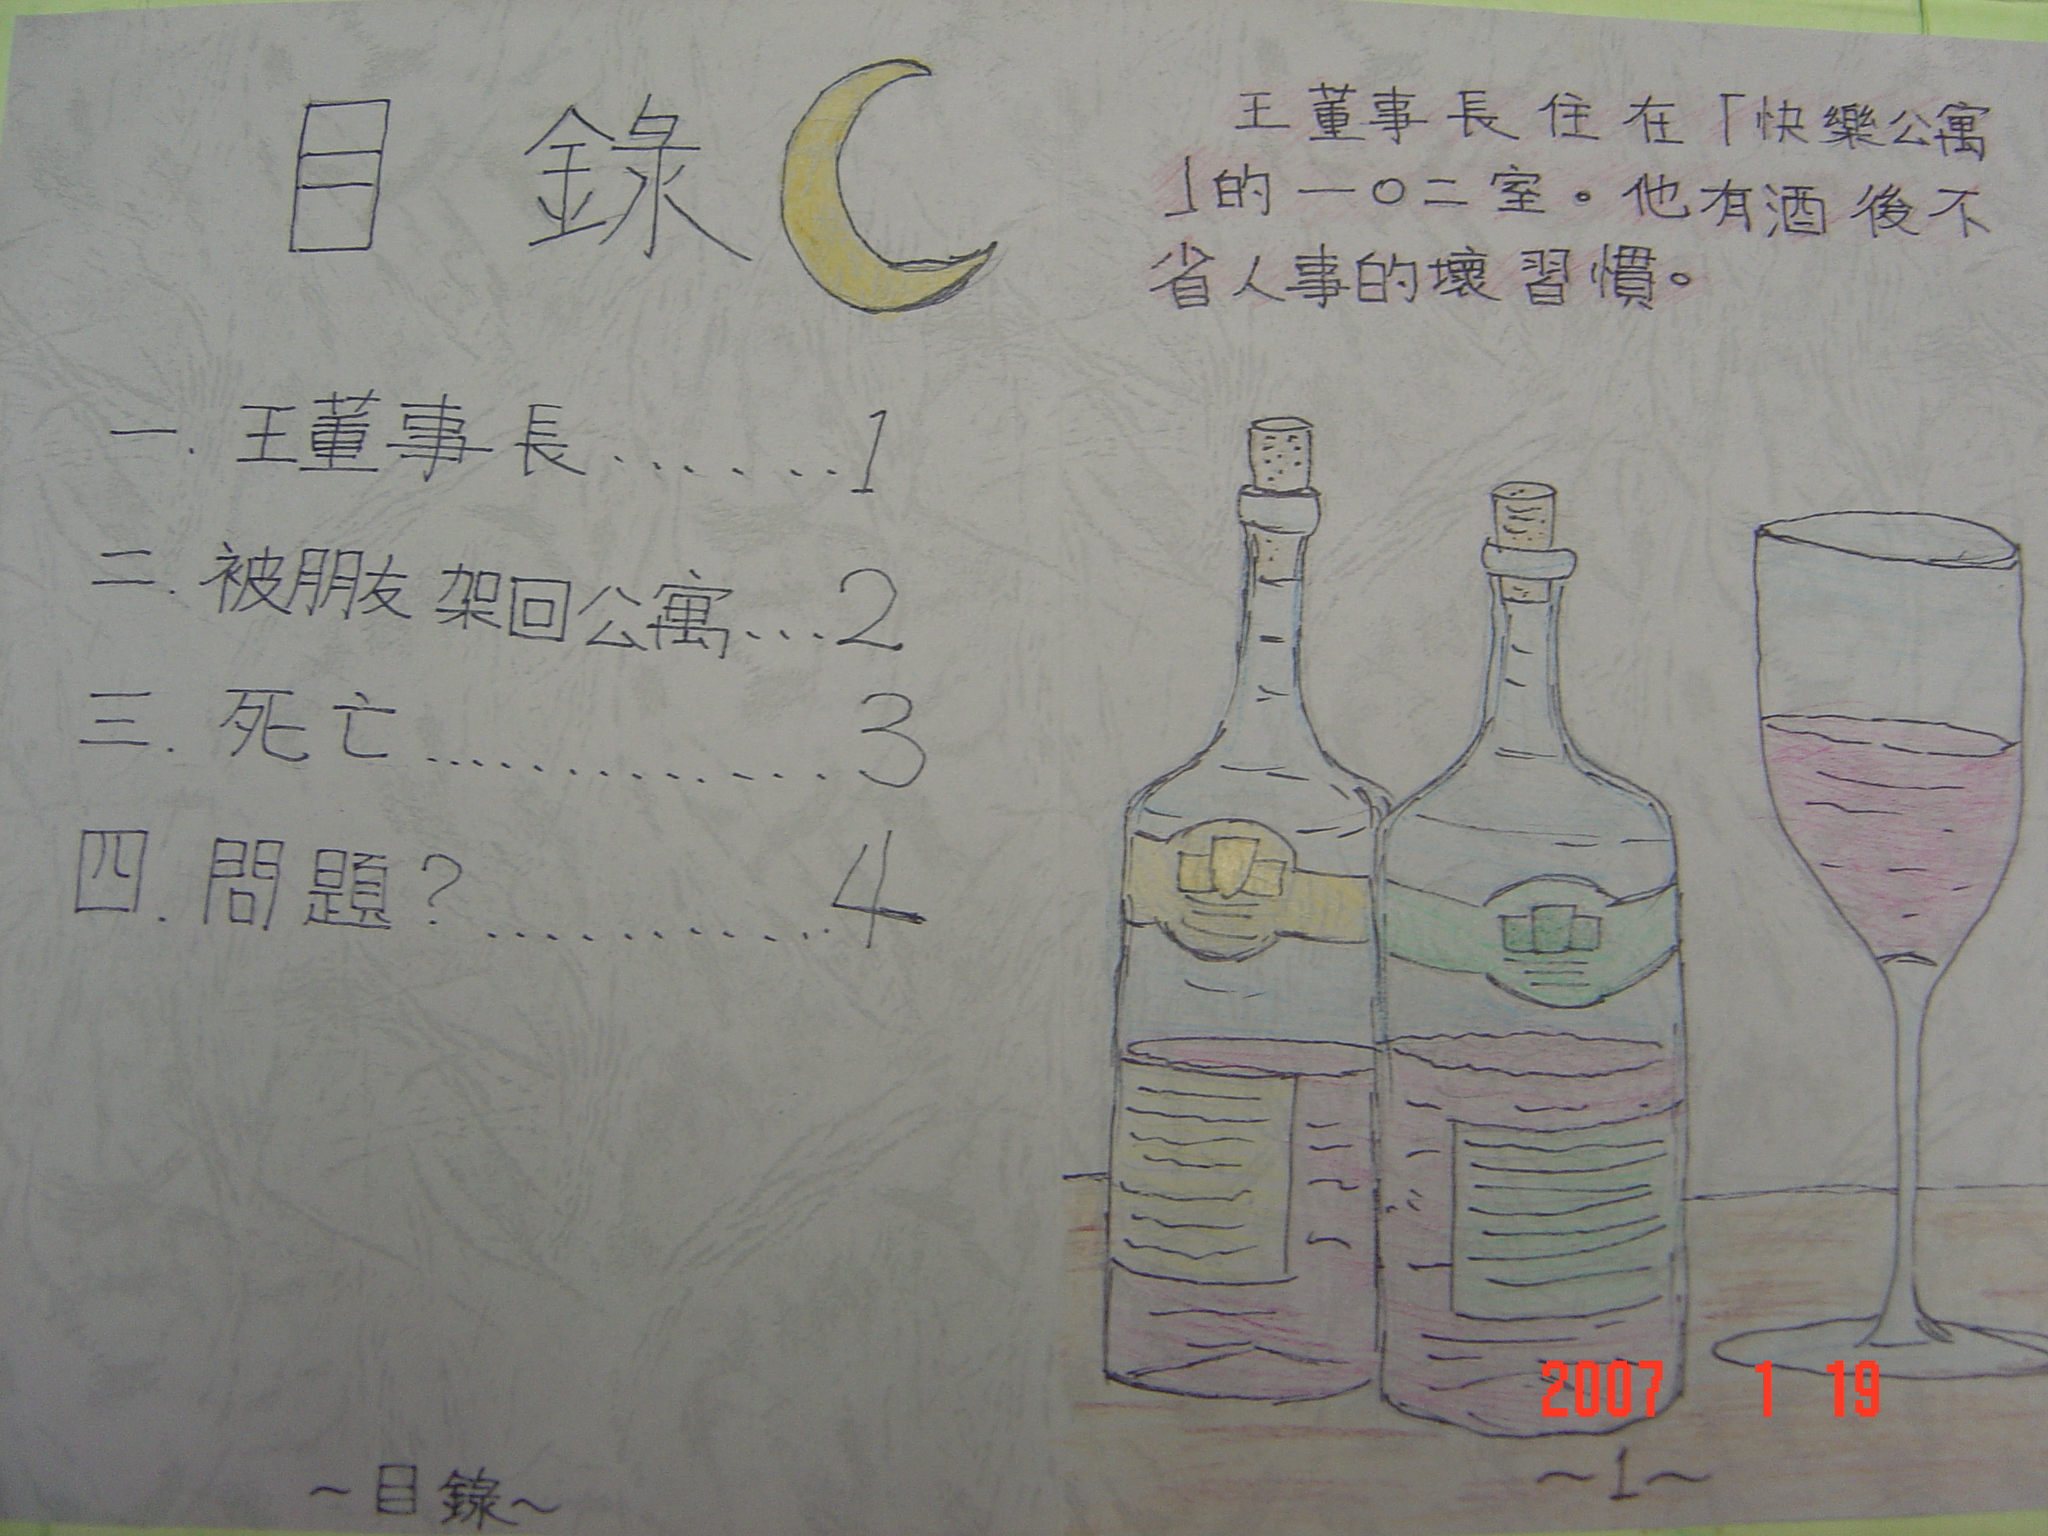 目錄
一.王董事長......1
二.被朋友架回公寓...2
三.死亡.............3
四.問題?............4
~目錄~
王董事長住在「快樂公寓
」的一〇二室。他有酒後不
省人事的壞習慣。
2007 1 19
~1~